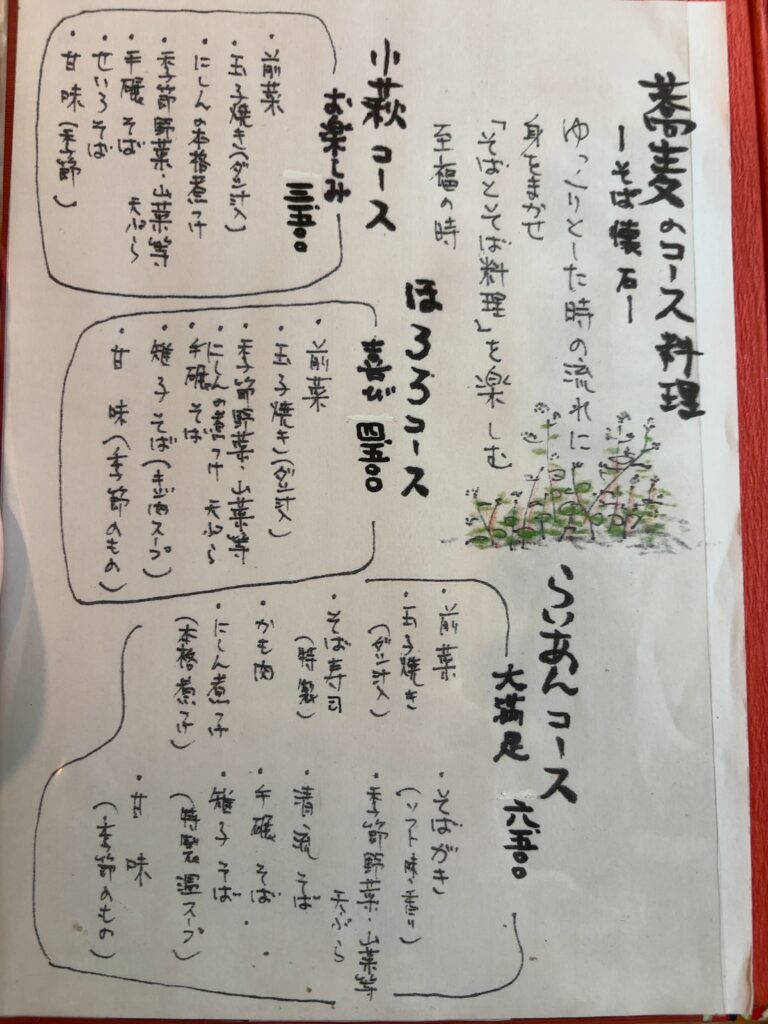 蕎麦のコース料理
ーそば懐石ー
ゆっくりとした時の流れに
身をまかせ
「そばとそば料理」を楽しむ
至福の時
小萩コース
お楽しみ 三五〇〇
・前菜
・玉子焼き(ダシ汁入)
・にしんの本格煮つけ
・季節野菜・山菜等
天ぷら
・手碾そば
・せいろそば
・甘味(季節)
ほろろコース
喜び 四五〇〇
・前菜
・玉子焼き(ダシ汁入)
・季節野菜・山菜等
天ぷら
・にしんの煮つけ
・手碾そば
・雉子そば(キジ肉スープ)
・甘味(季節のもの)
らいあんコース
大満足 六五〇〇
・前菜
・玉子焼き
(ダシ汁入)
・そば寿司
(特製)
・かも肉
・にしん煮つけ
(本格煮つけ)
・そばがき
(ソフト 香り)
・季節野菜・山菜等
天ぷら
・清流そば
・手碾そば
・雉子そば
(特製温スープ)
・甘味
(季節のもの)